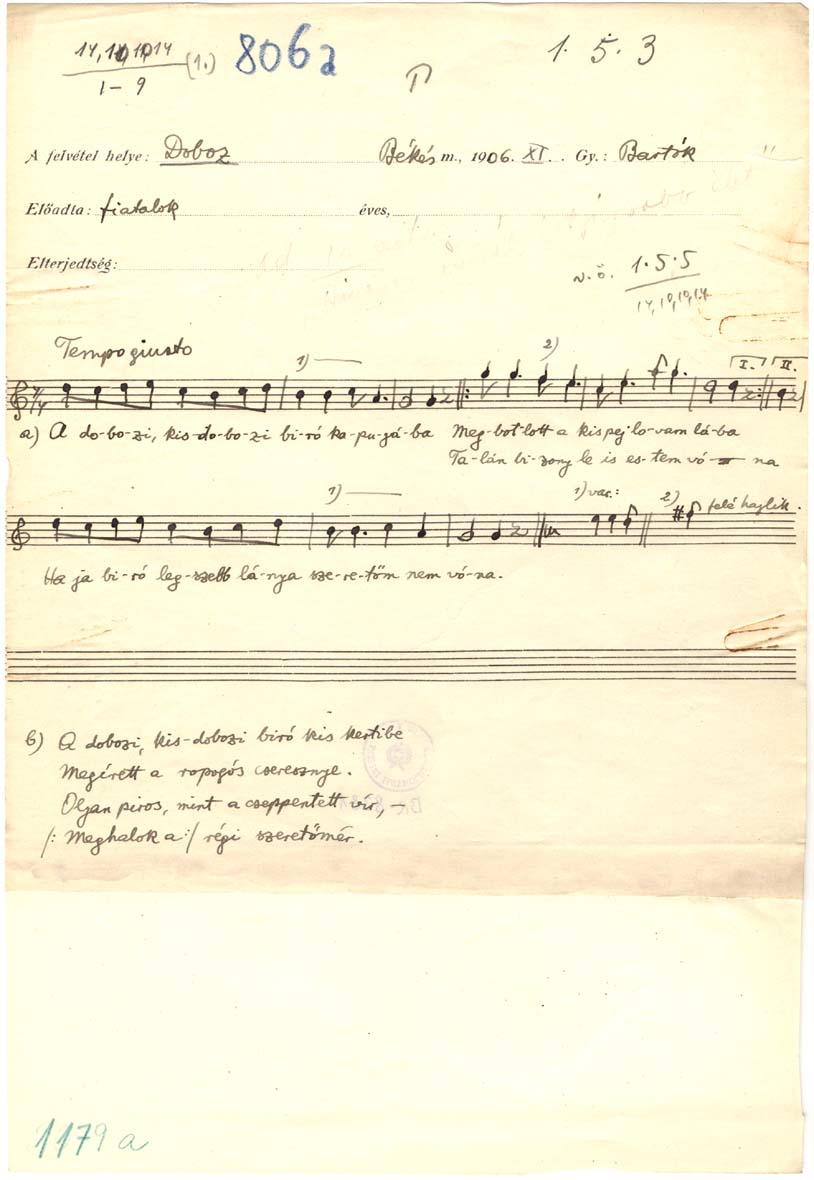 14, 10, 10, 14 (1.) 806a 1. 5. 3
1 – 9
A felvétel helye: Doboz Békés m., 1906. XI. Gy.: Bartók
Előadta: fiatalok éves,
Elterjedtség:
1 . 5 . 5
14, 10, 10, 14
Tempo giusto
1) 2) I. II.
a) A do-bo-zi, kis-do-bo-zi bi-ró ka-pu-já-ba Meg-bot-lott a kis pej lo-vam lá-ba
Ta-lán bi-zony le is es-tem vó-na
1) 1) var.: 2) felé hajlik.
Ha ja bi-ró leg-szebb lá-nya sze-re-tőm nem vó-na.
b) A dobozi, kis-dobozi biró kis kertibe
Megérett a ropogós cseresznye.
Oljan piros, mint a cseppentett vír, –
/: Meghalok a :/ régi szeretőmér.
1179 a